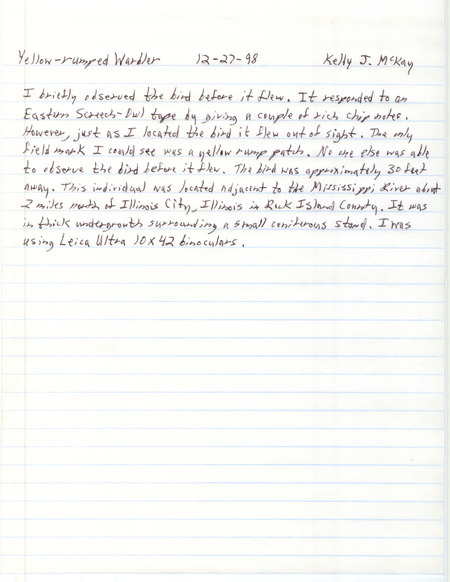 Yellow-rumped Warbler 12-27-98 Kelly J. McKay
I briefly observed the bird before it flew. It responded to an
Eastern Screech-Owl tape by giving a couple of rich chip notes.
However, just as I located the bird it flew out of sight. The only
field mark I could see was a yellow rump patch. No one else was able
to observe the bird before it flew. The bird was approximately 30 feet
away. This individual was located adjacent to the Mississippi River about
2 miles north of Illinois City, Illinois in Rock Island County. It was
in thick undergrowth surrounding a small coniferous stand. I was
using Leica Ultra 10x42 binoculars.